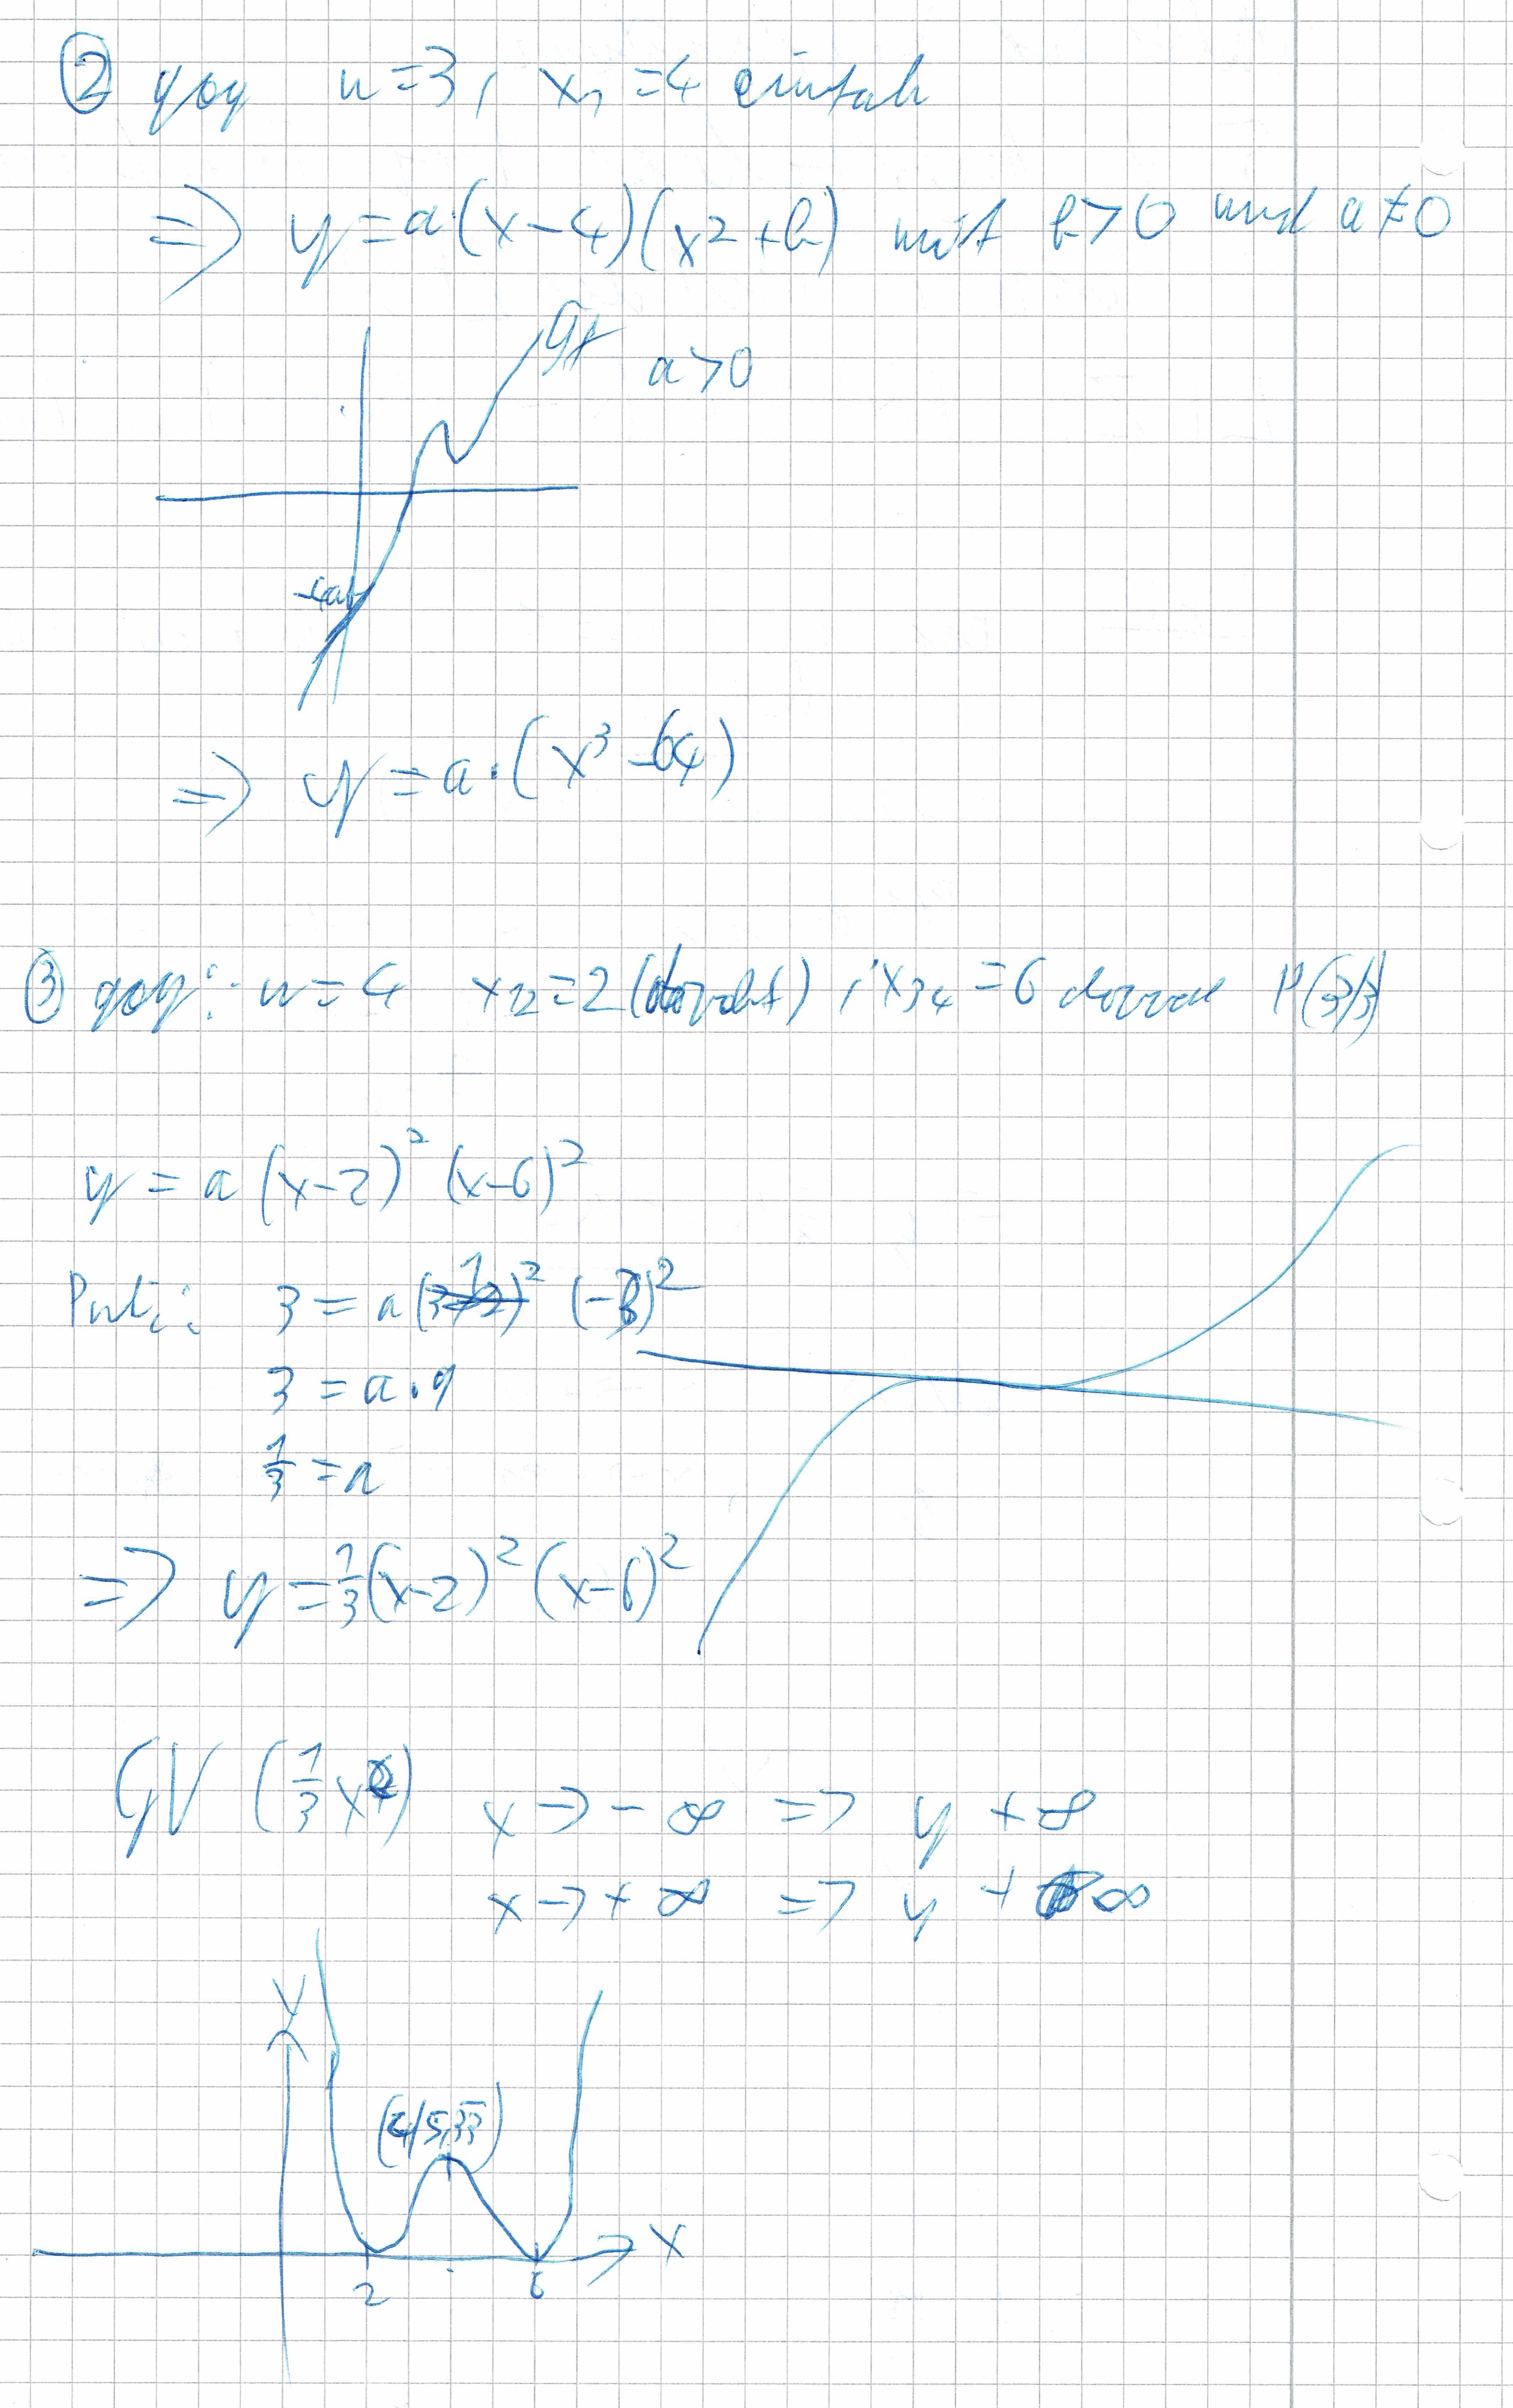 ② geg n=3, x₁=4 einfach
⇒ y=a·(x-4)(x²+b) mit b>0 und a≠0
Gf a>0
-4ab
⇒ y=a·(x³-64)
③ geg: n=4 x₁₂=2 (doppelt), x₃₄=6 P(3/3)
y=a(x-2)²(x-6)²
3=a(1)²(-3)²
3=a·9
1/3=a
⇒ y=1/3(x-2)²(x-6)²
GV (1/3x⁴) x→-∞ ⇒ y+∞
x→+∞ ⇒ y+∞
y
(4/5,33)
x
2 6